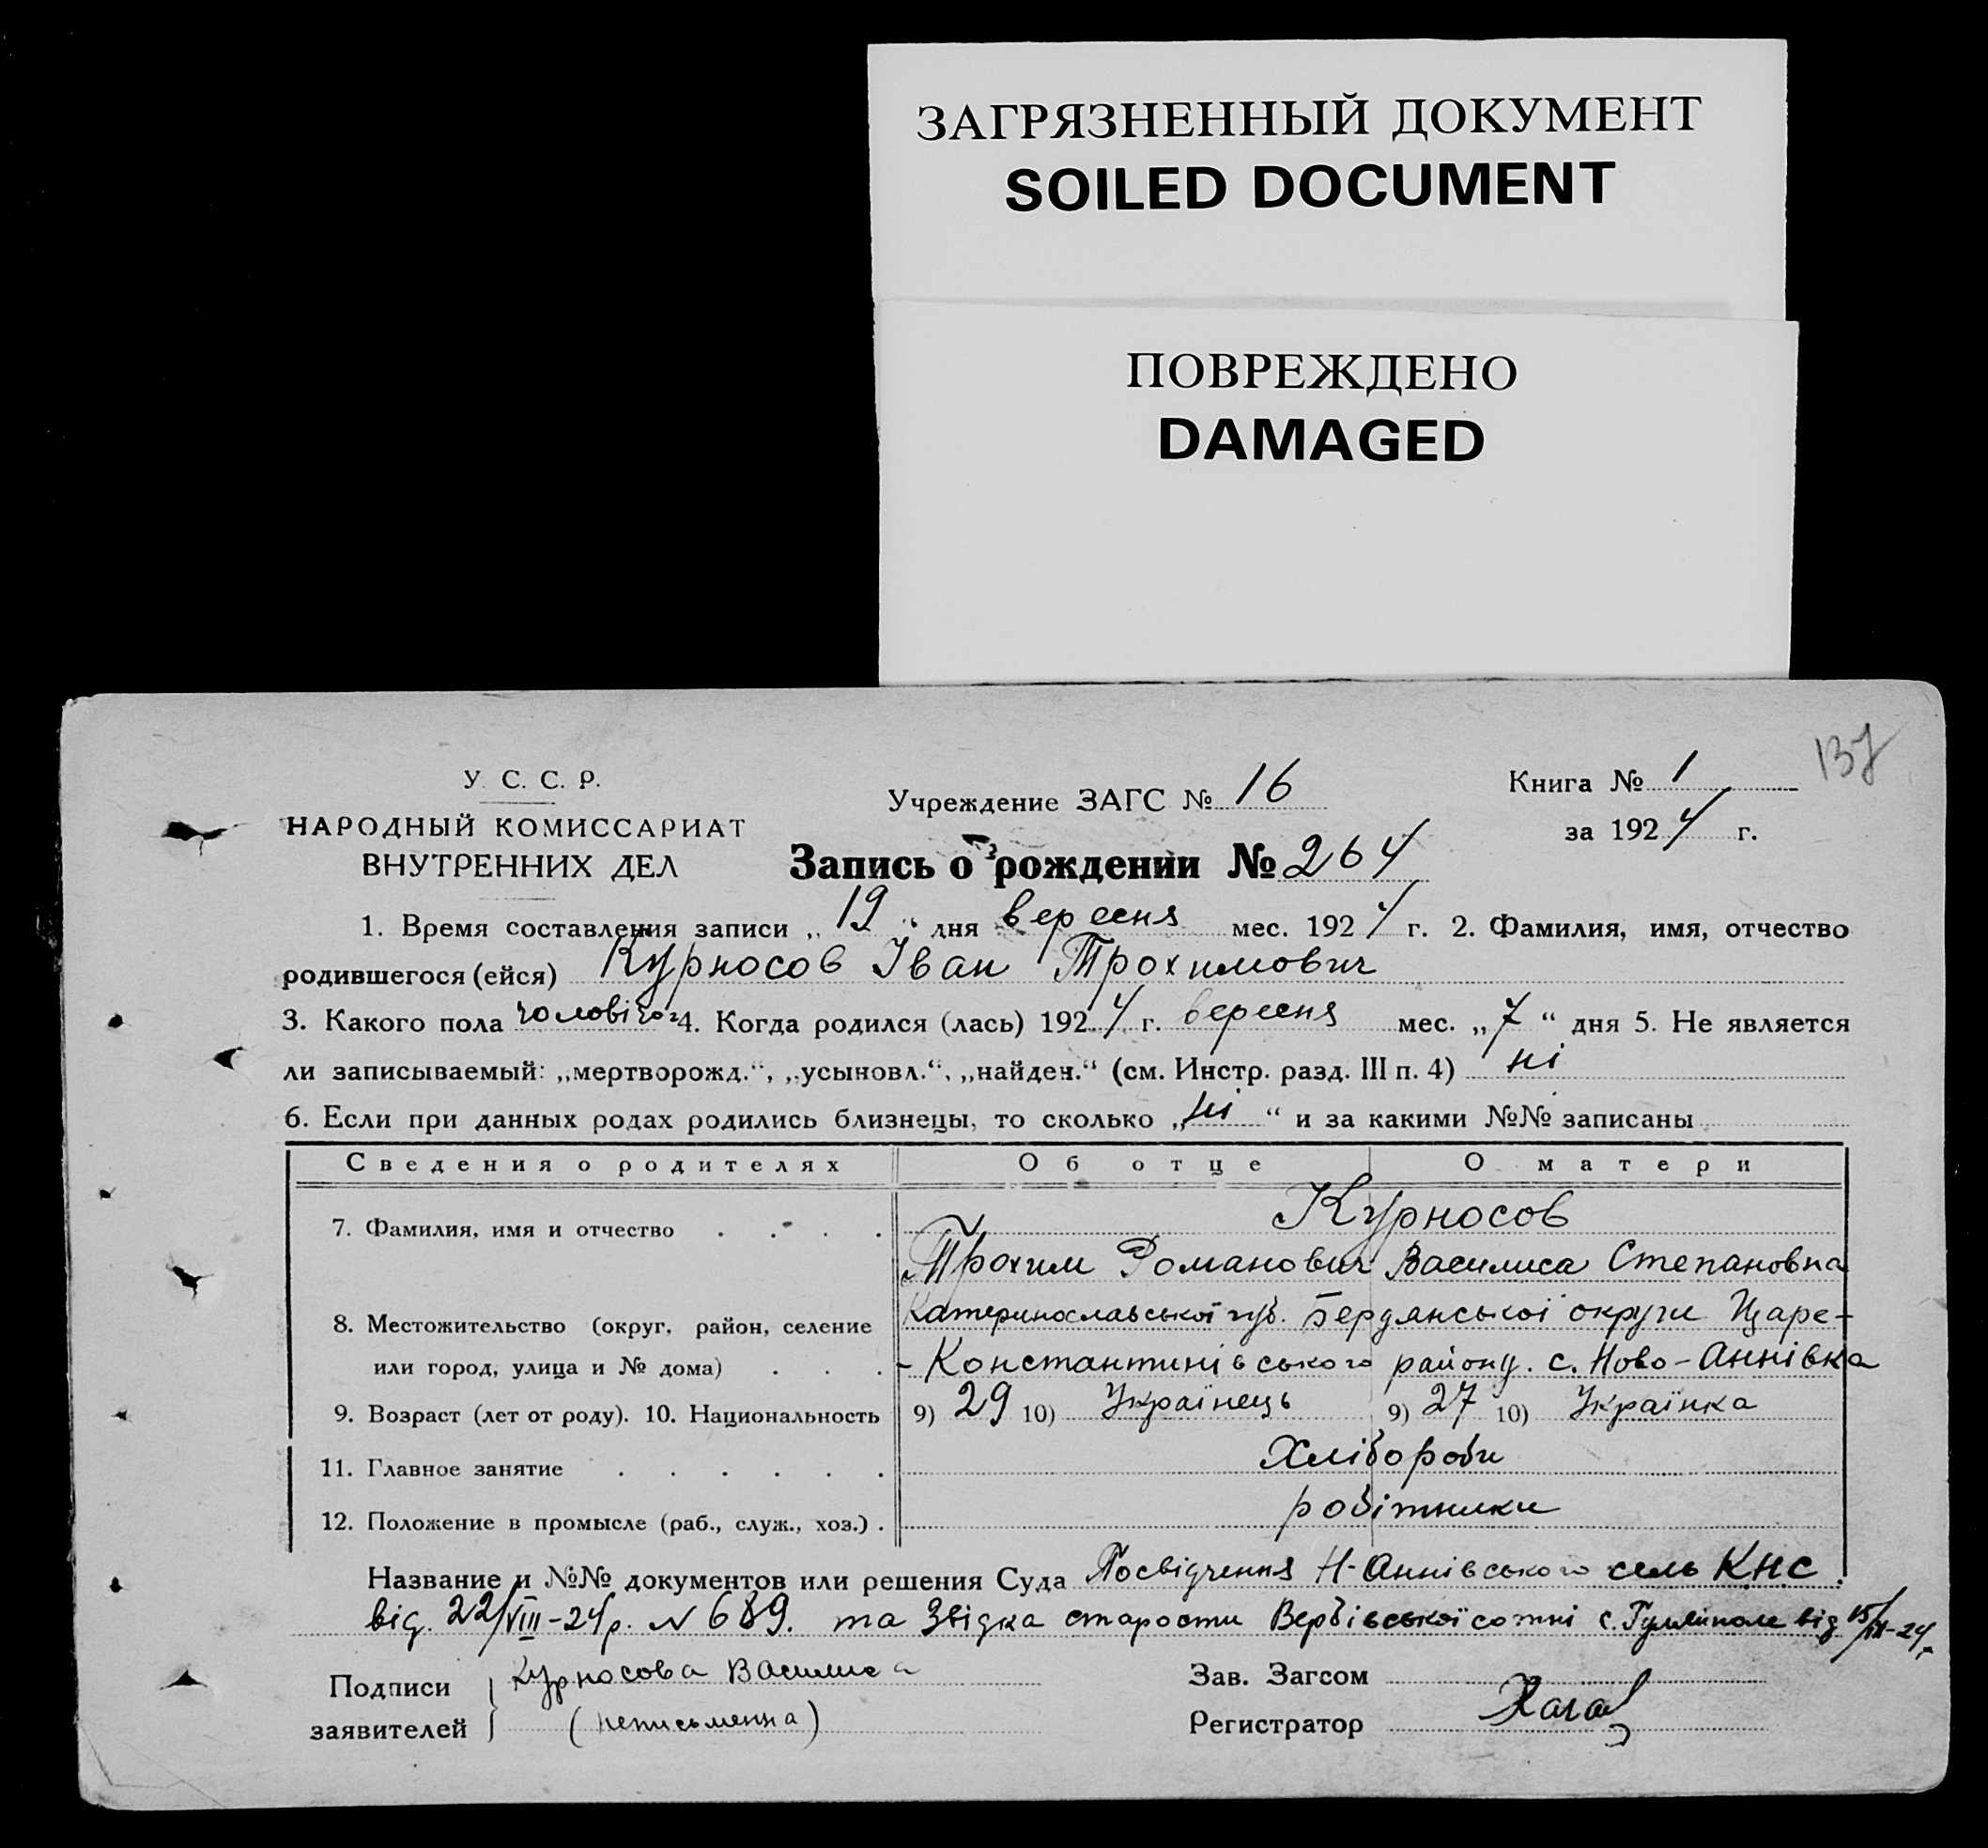 ЗАГРЯЗНЕННЫЙ ДОКУМЕНТ
SOILED DOCUMENT
ПОВРЕЖДЕНО
DAMAGED
137
У. С. С. Р.
НАРОДНЫЙ КОМИССАРИАТ
ВНУТРЕННИХ ДЕЛ
Учреждение ЗАГС № 16
Книга № 1
за 1924 г.
Запись о рождении № 264
1. Время составления записи „19“ дня вересня мес. 1924 г. 2. Фамилия, имя, отчество
родившегося (ейся) Курносов Іван Трохимович
3. Какого пола чоловічог 4. Когда родился (лась) 1924 г. вересня мес. „7“ дня 5. Не является
ли записываемый: „мертворожд.“, „усыновл.“, „найден.“ (см. Инстр. разд. III п. 4) ні
6. Если при данных родах родились близнецы, то сколько „ні“ и за какими №№ записаны
Сведения о родителях Об отце О матери
7. Фамилия, имя и отчество Курносов
Трохим Романович Василиса Степановна
8. Местожительство (округ, район, селение Катеринославської губ. Бердянської округи Царе-
или город, улица и № дома) - Константинівського району. с. Ново-Аннівка
9. Возраст (лет от роду). 10. Национальность 9) 29 10) Українець 9) 27 10) Українка
11. Главное занятие Хлібороби
12. Положение в промысле (раб., служ., хоз.) робітники
Название и №№ документов или решения Суда Посвідчення Н-Аннівського сель К.Н.С.
від. 22/VIII-24р. № 689. та Звідка старости Вербівської сотні с. Гуляйполе від 15/IX-24
Подписи заявителей Курносова Василиса
(неписьменна)
Зав. Загсом
Регистратор